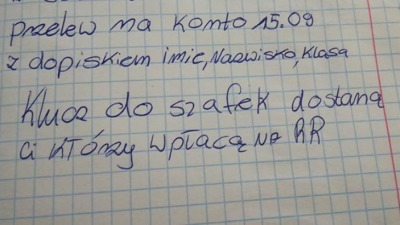 przelew na konto 15.09
z dopiskiem imie, Nazwisko, Klasa
Klucz do szafek dostaną
ci którzy wpłacą na RR